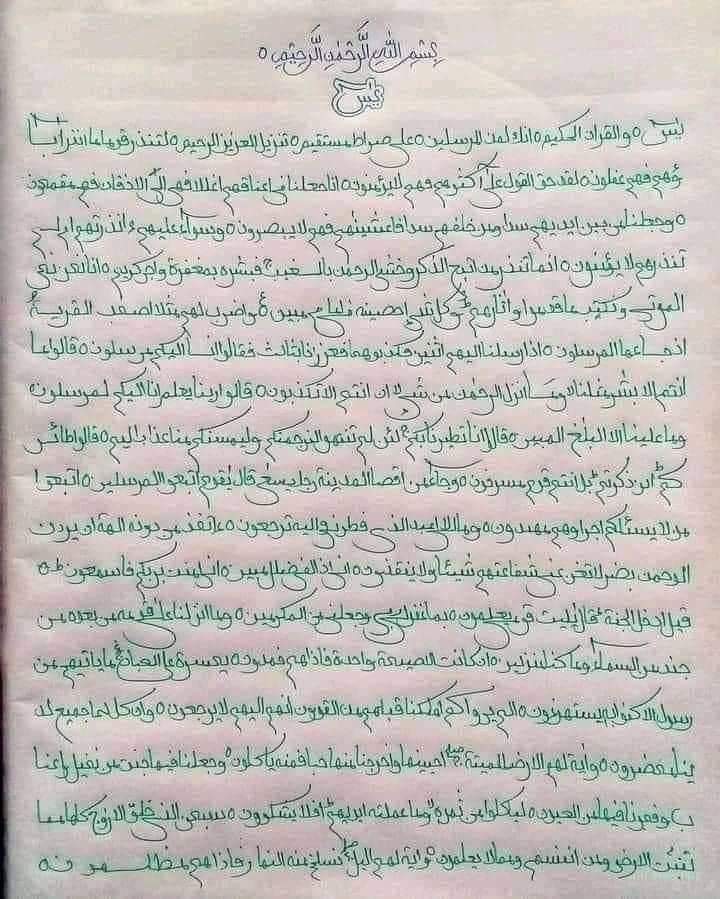 بسم الله الرحمن الرحيم ٥
يس
يس ٥ والقران الحكيم ٥ انك لمن المرسلين ٥ على صراط مستقيم ٥ تنزيل العزيز الرحيم ٥ لتنذر قوما ما انذر ابا
ؤهم فهم غفلون ٥ لقد حق القول على اكثرهم فهم لا يؤمنون ٥ انا جعلنا في اعناقهم اغللا فهي الى الاذقان فهم مقمحون
٥ وجعلنا من بين ايديهم سدا ومن خلفهم سدا فاغشينهم فهم لا يبصرون ٥ وسواء عليهم ءانذرتهم ام لم
تنذرهم لا يؤمنون ٥ انما تنذر من اتبع الذكر وخشي الرحمن بالغيب فبشره بمغفرة واجر كريم ٥ انا نحن نحي
الموتى ونكتب ما قدموا واثارهم وكل شيء احصينه في امام مبين ٥ واضرب لهم مثلا اصحب القرية
اذ جاءها المرسلون ٥ اذ ارسلنا اليهم اثنين فكذبوهما فعززنا بثالث فقالوا انا اليكم مرسلون ٥ قالوا ما
انتم الا بشر مثلنا وما انزل الرحمن من شيء ان انتم الا تكذبون ٥ قالوا ربنا يعلم انا اليكم لمرسلون ٥
وما علينا الا البلغ المبين ٥ قالوا انا تطيرنا بكم لئن لم تنتهوا لنرجمنكم وليمسنكم منا عذاب اليم ٥ قالوا طائر
كم ائن ذكرتم بل انتم قوم مسرفون ٥ وجاء من اقصا المدينة رجل يسعى قال يقوم اتبعوا المرسلين ٥ اتبعوا
من لا يسئلكم اجرا وهم مهتدون ٥ وما لي لا اعبد الذي فطرني واليه ترجعون ٥ ءاتخذ من دونه الهة ان يردن
الرحمن بضر لا تغن عني شفاعتهم شيئا ولا ينقذون ٥ اني اذا لفي ضلل مبين ٥ اني امنت بربكم فاسمعون ٥
قيل ادخل الجنة قال يليت قومي يعلمون ٥ بما غفر لي ربي وجعلني من المكرمين ٥ وما انزلنا على قومه من بعده من
جند من السماء وما كنا منزلين ٥ ان كانت الا صيحة واحدة فاذا هم خمدون ٥ يحسرة على العباد ما ياتيهم من
رسول الا كانوا به يستهزءون ٥ الم يروا كم اهلكنا قبلهم من القرون انهم اليهم لا يرجعون ٥ وان كل لما جميع لد
ينا محضرون ٥ واية لهم الارض الميتة احيينها واخرجنا منها حبا فمنه ياكلون ٥ وجعلنا فيها جنت من نخيل واعنا
ب وفجرنا فيها من العيون ٥ لياكلوا من ثمره وما عملته ايديهم افلا يشكرون ٥ سبحن الذي خلق الازوج كلها مما
تنبت الارض ومن انفسهم ومما لا يعلمون ٥ واية لهم اليل نسلخ منه النهار فاذا هم مظلمون ٥